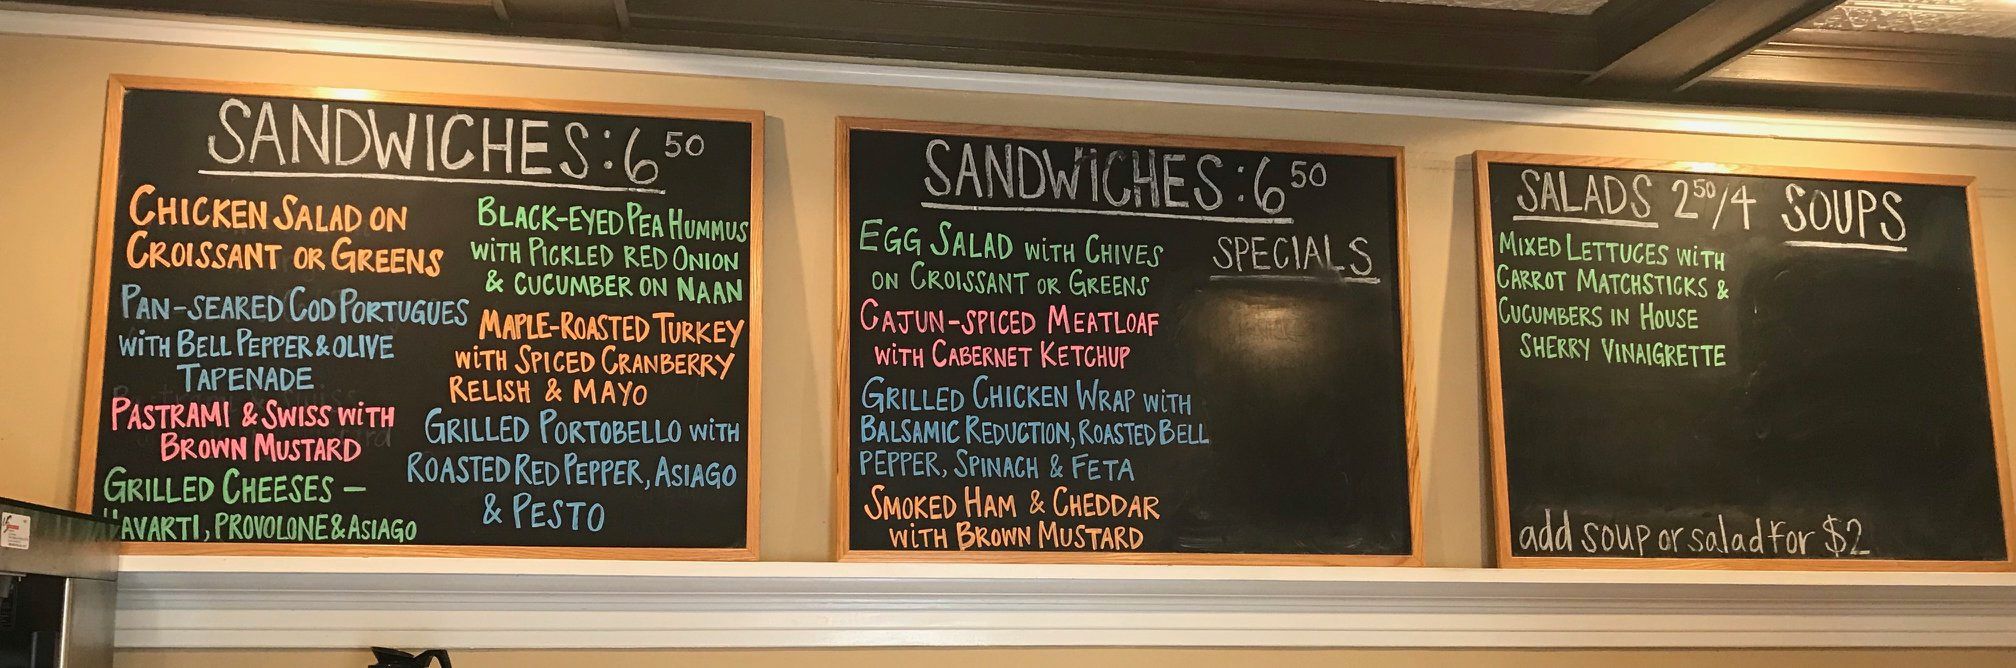 SANDWICHES: 6 50
CHICKEN SALAD ON
CROISSANT OR GREENS
PAN-SEARED COD PORTUGUES
WITH BELL PEPPER & OLIVE
TAPENADE
PASTRAMI & SWISS WITH
BROWN MUSTARD
GRILLED CHEESES –
HAVARTI, PROVOLONE & ASIAGO
BLACK-EYED PEA HUMMUS
WITH PICKLED RED ONION
& CUCUMBER ON NAAN
MAPLE-ROASTED TURKEY
WITH SPICED CRANBERRY
RELISH & MAYO
GRILLED PORTOBELLO WITH
ROASTED RED PEPPER, ASIAGO
& PESTO
SANDWICHES: 6 50
EGG SALAD WITH CHIVES
ON CROISSANT OR GREENS
CAJUN-SPICED MEATLOAF
WITH CABERNET KETCHUP
GRILLED CHICKEN WRAP WITH
BALSAMIC REDUCTION, ROASTED BELL
PEPPER, SPINACH & FETA
SMOKED HAM & CHEDDAR
WITH BROWN MUSTARD
SPECIALS
SALADS 2 50/4
MIXED LETTUCES WITH
CARROT MATCHSTICKS &
CUCUMBERS IN HOUSE
SHERRY VINAIGRETTE
SOUPS
add soup or salad for $2